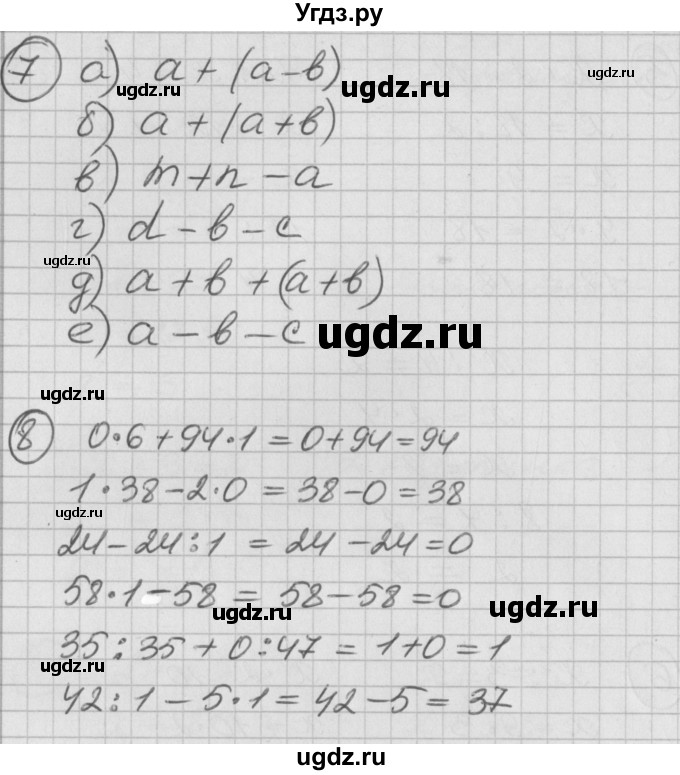 Угдз.ру
7 а) a + (a - b)
б) a + (a + b)
в) m + n - a
г) d - b - c
д) a + b + (a + b)
е) a - b - c
8 0·6 + 94·1 = 0 + 94 = 94
1·38 - 2·0 = 38 - 0 = 38
24 - 24:1 = 24 - 24 = 0
58·1 - 58 = 58 - 58 = 0
35:35 + 0:47 = 1 + 0 = 1
42:1 - 5·1 = 42 - 5 = 37
ugdz.ru
ugdz.ru
ugdz.ru
ugdz.ru
ugdz.ru
ugdz.ru
ugdz.ru
ugdz.ru
ugdz.ru
ugdz.ru
ugdz.ru